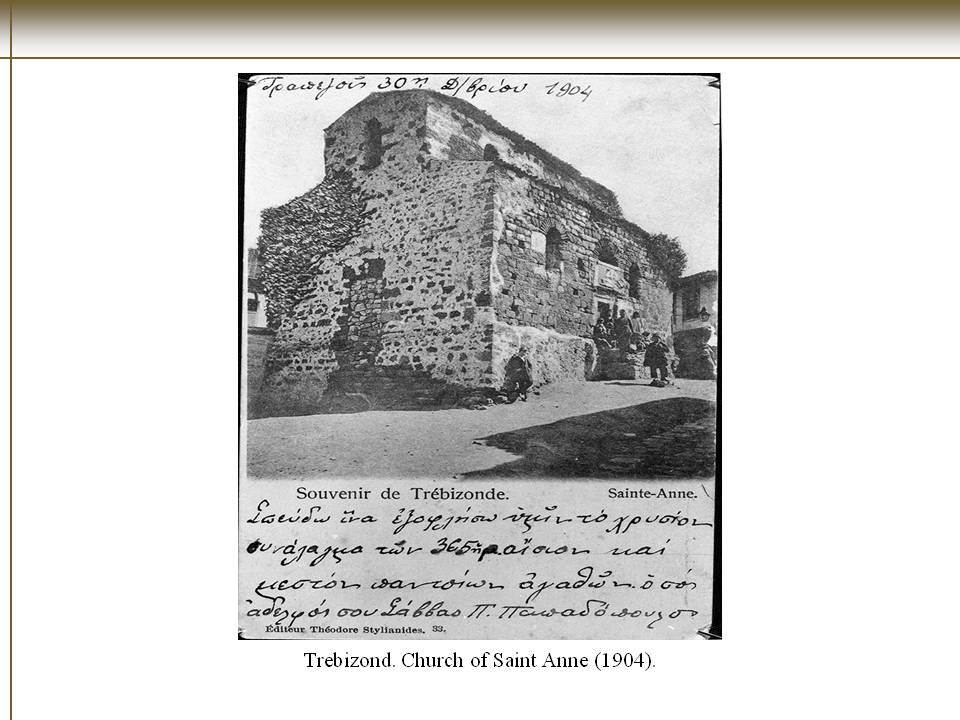 Τραπεζοῦς 30ῇ Δ/βρίου 1904
Souvenir de Trébizonde.
Sainte-Anne.
Σπεύδω ἵνα ἐξοφλήσω ὑμῖν τὸ χρυσίον
συνάλαγμα τῶν 365 αἴσιον καί
μεστόν παντοίων ἀγαθῶν. ὁ σός
ἀδελφός σου Σάββας Π. Παπαδόπουλος
Éditeur Théodore Stylianides. 33.
Trebizond. Church of Saint Anne (1904).